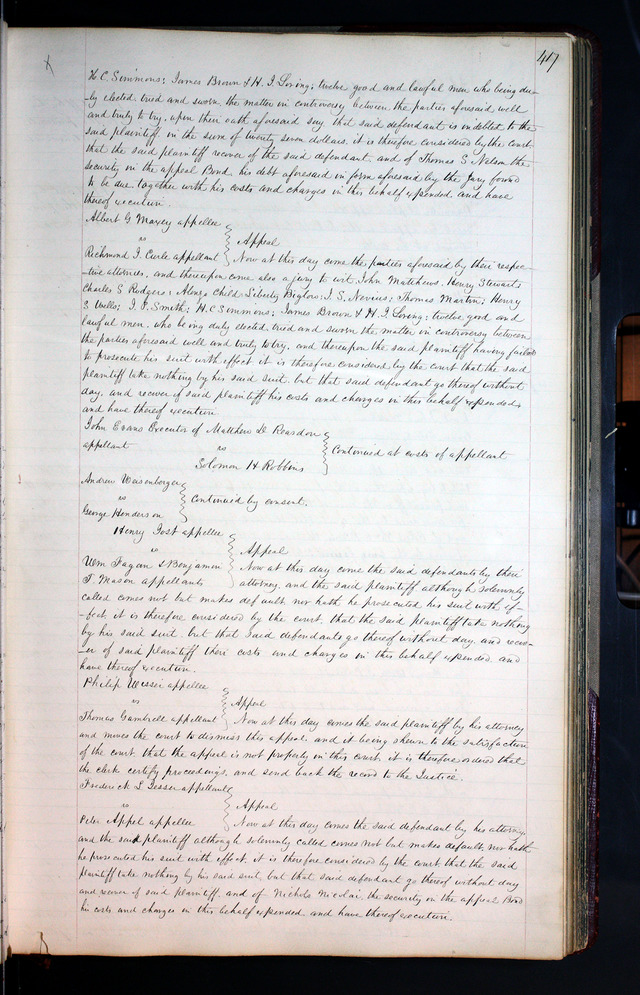 417
H. C. Simmons; James Brown & H. J. Loring; twelve good and lawful men who being du-
-ly elected tried and sworn the matter in controversy between the parties aforesaid well
and truly to try, upon their oath aforesaid say that said defendant is indebted to the
said plaintiff in the sum of twenty seven dollars. it is therefore considered by the court
that the said plaintiff recover of the said defendant and of Thomas S Nelson the
security in the appeal Bond, his debt aforesaid in form aforesaid by the Jury found
to be due together with his costs and charges in this behalf expended and have
thereof execution
Albert G Maxey appellee
vs } Appeal
Richmond J. Curle appellant } Now at this day come the parties aforesaid by their respec-
-tive attornies, and thereupon come also a jury to wit, John Matthews, Henry Stewart;
Charles S Rodgers; Alonzo Child; Liberty Biglow; J. S. Nevius; Thomas Martin; Henry
S Wells; J. P. Smith; H. C Simmons; James Brown & H. J. Loring; twelve good and
lawful men, who being duly elected, tried and sworn the matter in controversy between
the parties aforesaid well and truly to try, and thereupon the said plaintiff having failed
to prosecute his suit with effect it is therefore considered by the court that the said
plaintiff take nothing by his said suit, but that said defendant go thereof without
day, and recover of said plaintiff his costs and charges in this behalf expended
and have thereof execution
John Evans Executor of Matthew D. Reardon
appellant vs } Continued at costs of appellant
Solomon H Robbins
Andrew Weisenberger
vs } Continued by consent.
George Henderson
Henry Jost appellee
vs } Appeal
Wm Fagan & Benjamin } Now at this day come the said defendants by their
T. Mason appellants attorney, and the said plaintiff although solemnly
called comes not but makes default, nor hath he prosecuted his suit with ef-
-fect it is therefore considered by the court, that the said plaintiff take nothing
by his said suit but that said defendants go thereof without day, and recov-
-er of said plaintiff their costs and charges in this behalf expended, and
have thereof execution.
Philip appellee
vs } Appeal
Thomas Gambrell appellant } Now at this day comes the said plaintiff by his attorney
and moves the court to dismiss this appeal, and it being shewn to the satisfaction
of the court that the appeal is not properly in this court it is therefore ordered that
the clerk certify proceedings, and send back the record to the Justice.
Frederick L appellant
vs } Appeal
Peter Appel appellee } Now at this day comes the said defendant by his attorney
and the said plaintiff although solemnly called comes not but makes default, nor hath
he prosecuted his suit with effect. it is therefore considered by the court that the said
plaintiff take nothing by his said suit, but that said defendant go thereof without day
and recover of said plaintiff, and of Nichols Nicolai the security in the appeal Bond
his costs and charges in this behalf expended and have thereof execution.